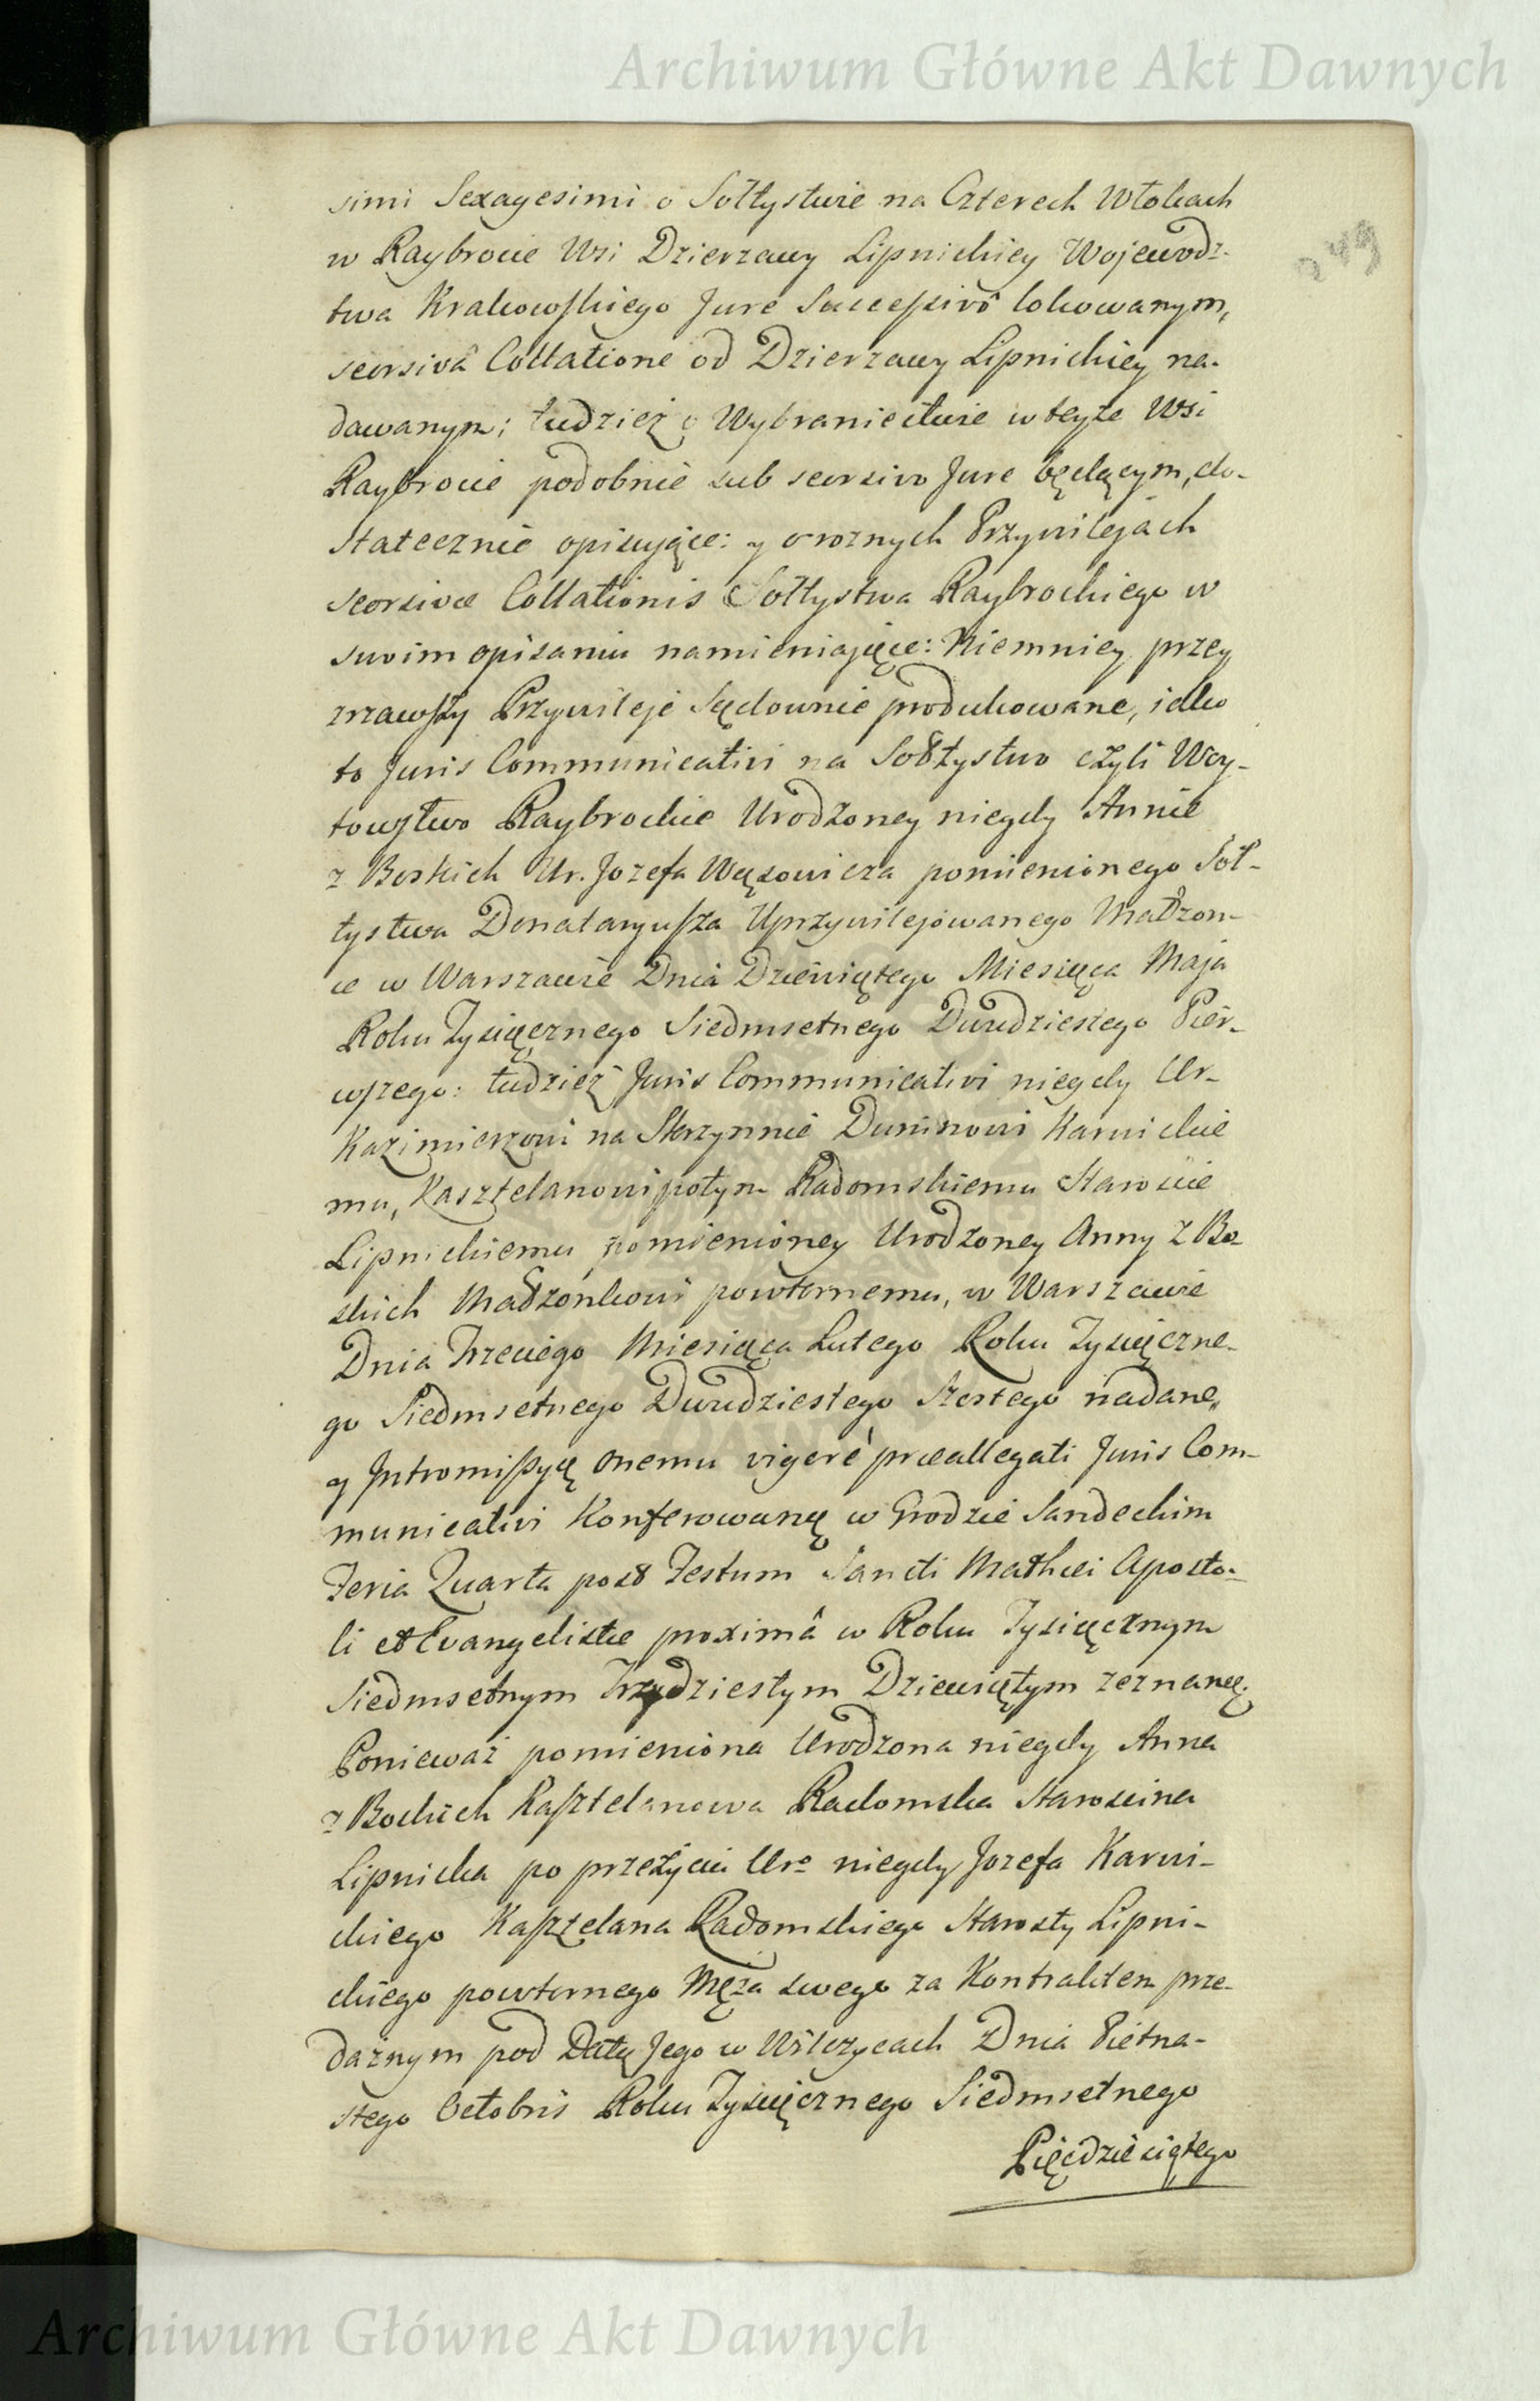 Archiwum Główne Akt Dawnych
simi Sexagesimi o Sołtystwie na Czterech Włokach
w Raybrocie Wsi Dzierzawy Lipnickiey Wojewodz-
twa Krakowskiego Jure Successivô lokowanym,
seorsivâ Collatione od Dzierzawy Lipnickiey na-
dawanym; tudzież o Wybraniectwie w teyże Wsi
Raybrocie podobnie sub seorsivo Jure będącym, do-
statecznie opisujące: y o roznych Przywilejach
seorsivae Collationis Sołtystwa Raybrockiego w
swoim opisaniu namieniające: Niemniey przey
zrzawszy Przywileje Sądownie produkowane, jako
to Juris Communicativi na Sołtystwo czyli Woy-
towstwo Raybrockie Urodzoney niegdy Annie
z Boskich Ur. Jozefa Wąsowicza pomienionego Soł-
tystwa Donataryusza Uprzywilejowanego Małżon-
ce w Warszawie Dnia Dziewiątego Miesiąca Maja
Roku Tysiącznego Siedmsetnego Dwudziestego Pier-
wszego: tudzież Juris Communicativi niegdy Ur-
Kazimierzowi na Skrzynnie Duninowi Karwickie
mu, Kasztelanowi potym Radomskiemu Staroście
Lipnickiemu, pomienioney Urodzoney Anny z Bo-
skich Małżonkowi powtornemu, w Warszawie
Dnia Trzeciego Miesiąca Lutego Roku Tysiączne-
go Siedmsetnego Dwudziestego Szostego nadane,
y Intromissyą onemu vigore praeallegati Juris Com-
municativi Konferowaną w Grodzie Sandeckim
Feria Quarta post Festum Sancti Mathaei Aposto-
li et Evangelistae proximâ w Roku Tysiącznym
Siedmsetnym Trzydziestym Dziewiątym zeznaną;
Ponieważ pomieniona Urodzona niegdy Anna
z Bockich Kasztelanowa Radomska Starościna
Lipnicka po przeżyciu Uro niegdy Jozefa Karwi-
ckiego Kasztelana Radomskiego Starosty Lipni-
ckiego powtornego Męża swego za Kontraktem prze-
dażnym pod Datą Jego w Wilczycach Dnia Pietna-
stego Octobris Roku Tysiącznego Siedmsetnego
Pięćdziesiątego
Archiwum Główne Akt Dawnych